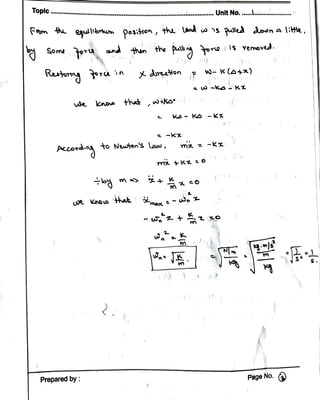 Topic Unit No. 1
From the equilibrium position, the load W is pulled down a little,
by some force and then the pulling force is removed.
Restoring force in x direction = W - K(Δ+x)
= W - KΔ - Kx
We know that, W=KΔ
= KΔ - KΔ - Kx
= -Kx
According to Newton's Law, mẍ = -Kx
mẍ + Kx = 0
÷by m => ẍ + K/m x = 0
we know that ẍmax = -ωn² x
-ωn² x + K/m x = 0
ωn² = K/m
ωn = √(K/m) = √(N/m / kg) = √(kg.m/s² / m / kg) = √(1/s²) = 1/s.
Prepared by : Page No. 3